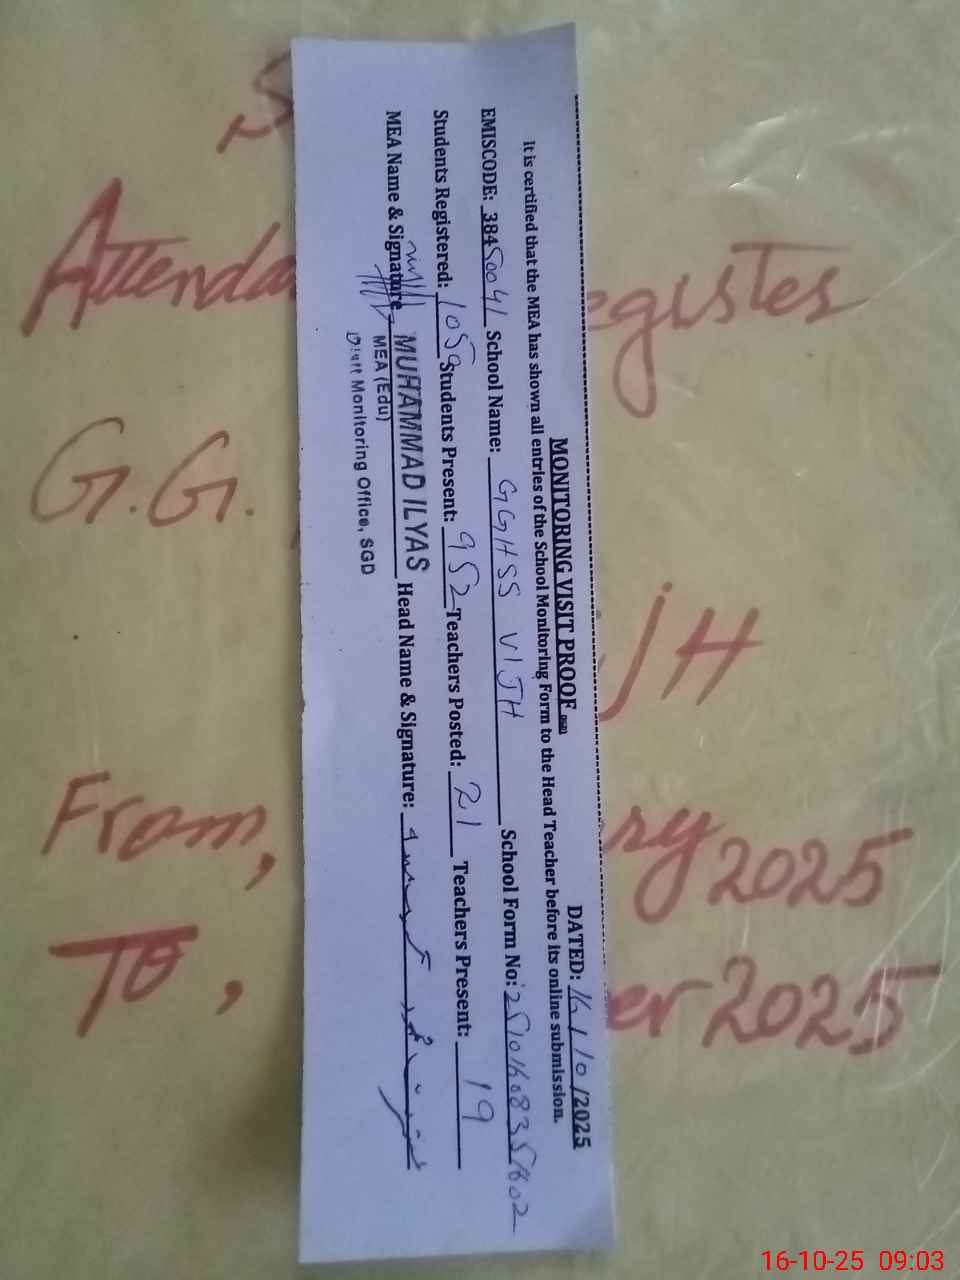 MONITORING VISIT PROOF
DATED: 16/10/2025
It is certified that the MEA has shown all entries of the School Monitoring Form to the Head Teacher before its online submission.
EMISCODE: 38450041 School Name: GGHSS VIJH School Form No:
Students Registered: 1059 Students Present: 952 Teachers Posted: 21 Teachers Present: 19
MEA Name & Signature MUHAMMAD ILYAS Head Name & Signature:
MEA (Edu)
Distt Monitoring Office, SGD
Attenda egister
G.G. JH
From, ry 2025
To, er 2025
16-10-25 09:03